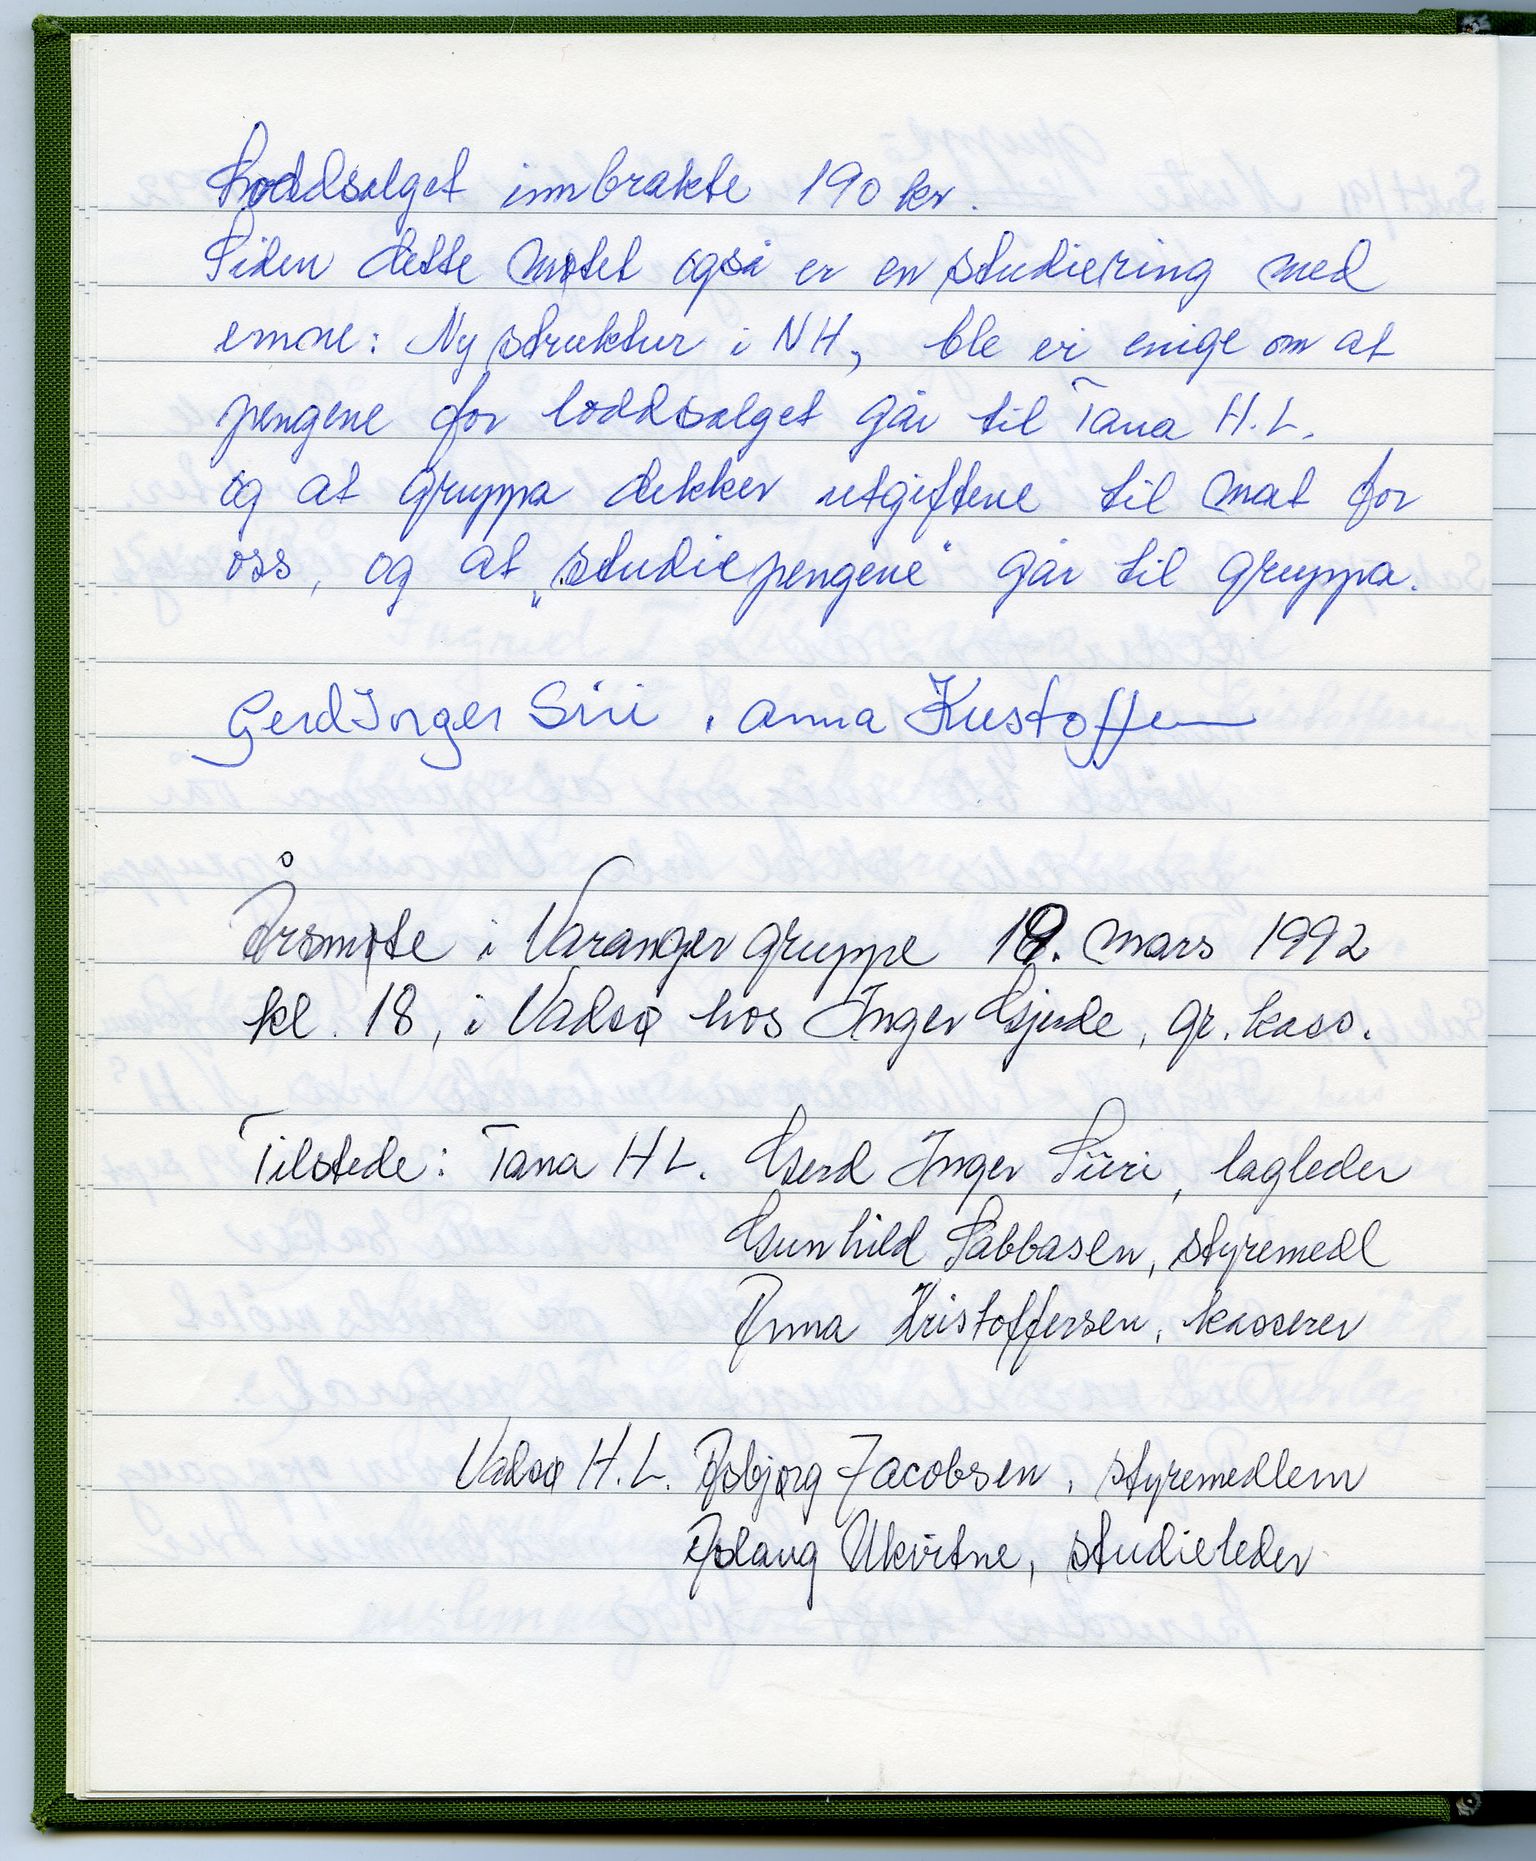 Loddsalget innbrakte 190 kr.
Siden dette møtet også er en studiering med
emne: Ny struktur i NH, ble vi enige om at
pengene for loddsalget går til Tana H.L.
og at gruppa dekker utgiftene til mat for
oss, og at „studiepengene" går til gruppa.
Gerd Inger Siiri . Anna Kristoffersen
Årsmøte i Varanger gruppe 19. mars 1992
kl. 18, i Vadsø hos Inger Gjerde, gr. kass.
Tilstede: Tana H L. Gerd Inger Siiri, lagleder
Gunhild Sabbasen, styremedl
Anna Kristoffersen, kasserer
Vadsø H.L. Asbjørg Jacobsen, styremedlem
Aslaug Ukvitne, studieleder